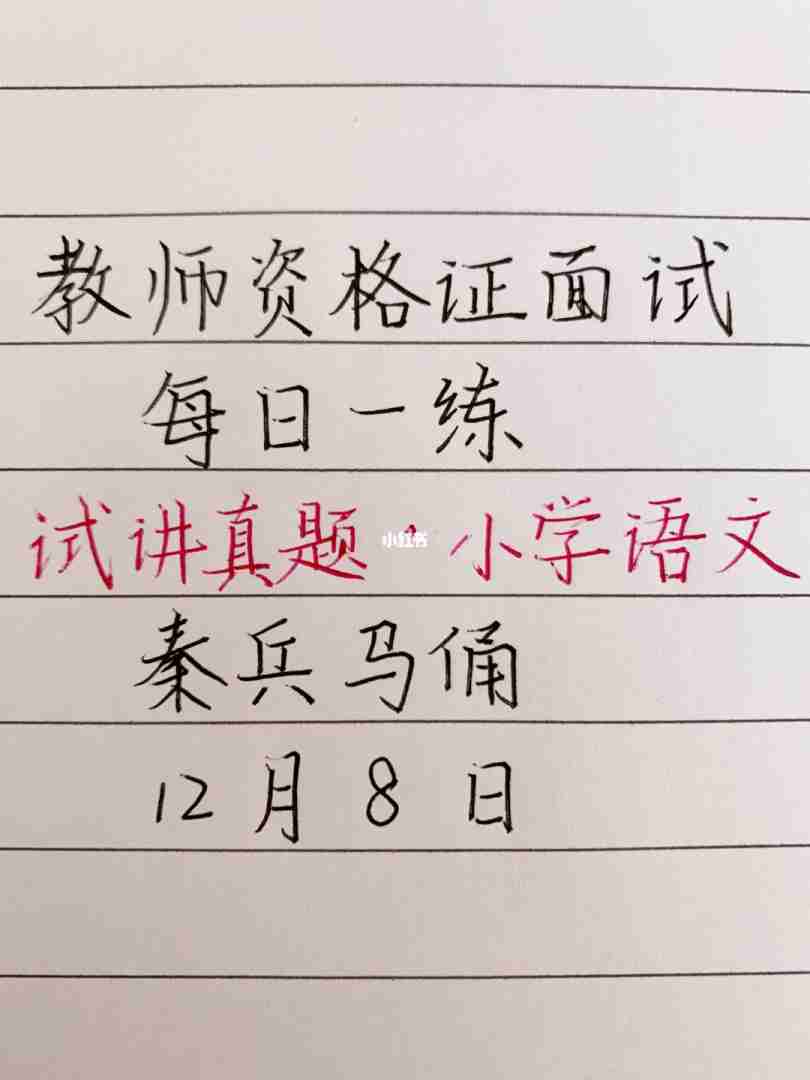 教师资格证面试
每日一练
试讲真题·小学语文
小红书
秦兵马俑
12月8日